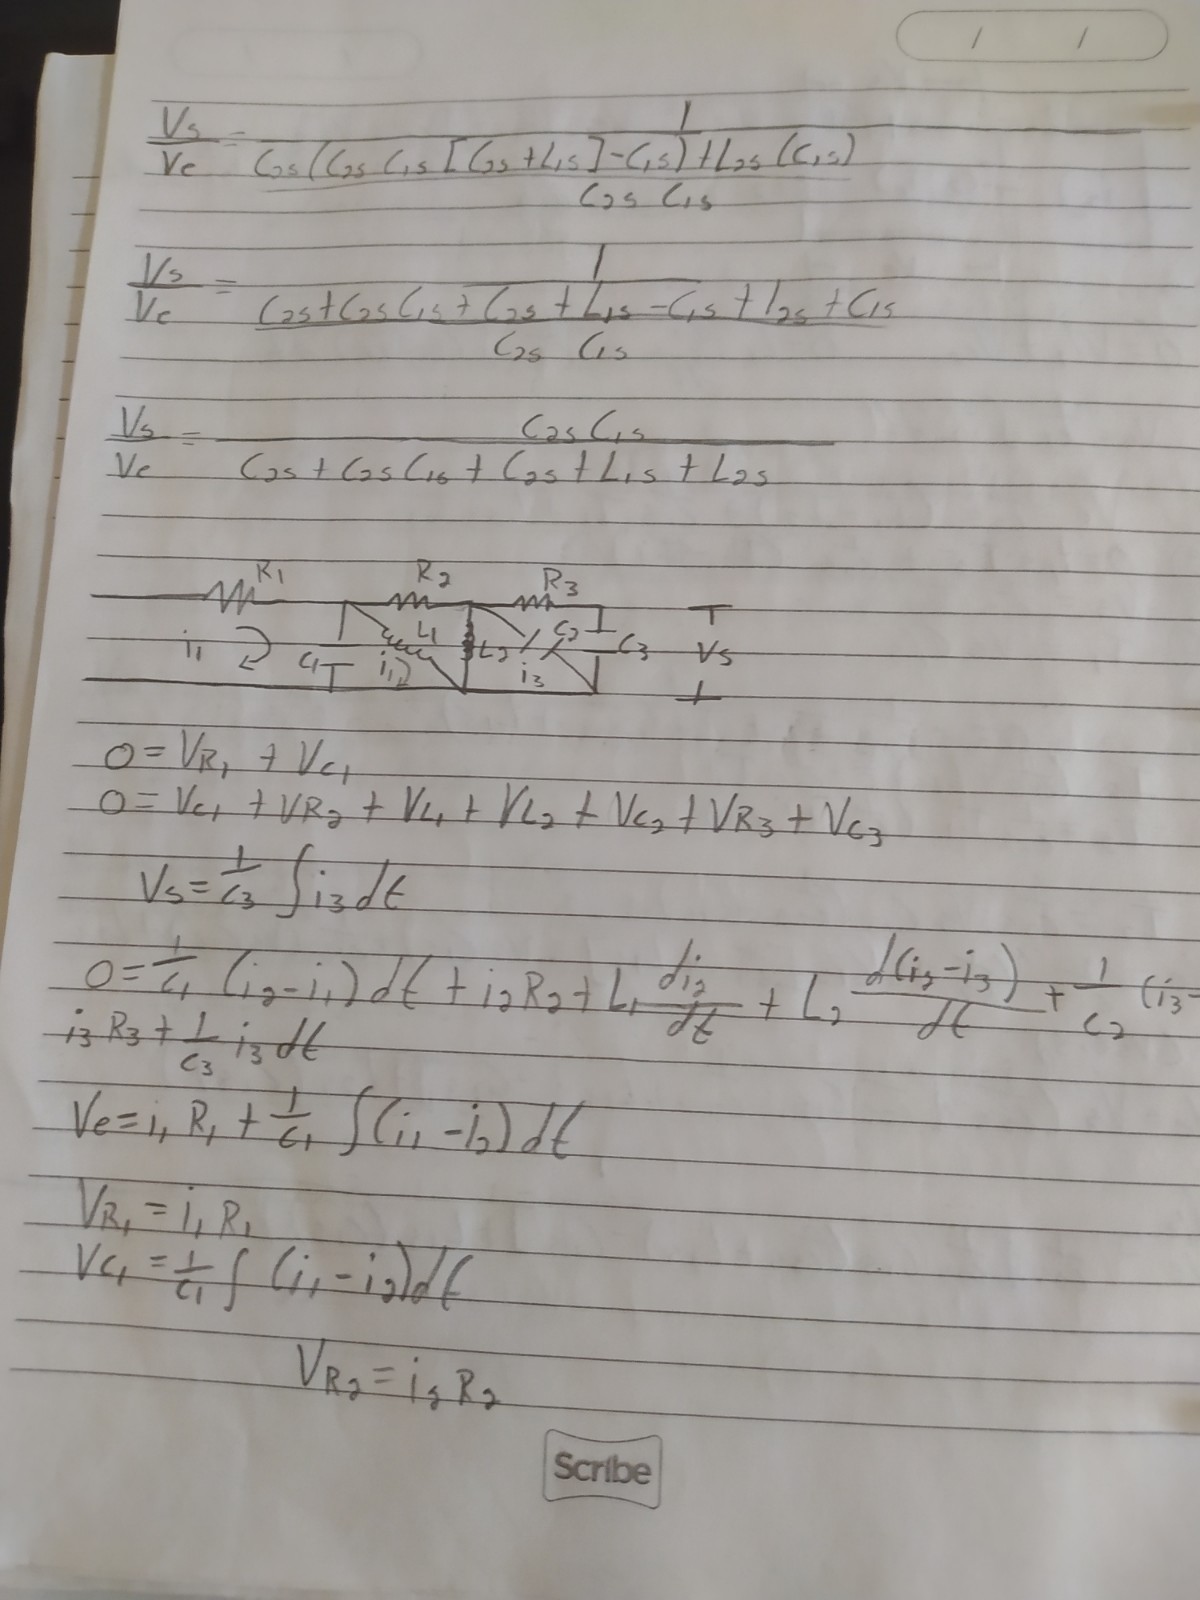 / /
Vs/Ve = 1/((C2s(C2s C1s [C2s+L1s]-C1s)+L2s(C1s))/(C2s C1s))
Vs/Ve = 1/((C2s+C2s C1s+C2s+L1s-C1s+L2s+C1s)/(C2s C1s))
Vs/Ve = (C2s C1s)/(C2s+C2s C1s+C2s+L1s+L2s)
R1 R2 R3
i1 C1 i1 L1 L2 i3 C2 C3 Vs
0=VR1+VC1
0=VC1+VR2+VL1+VL2+VC2+VR3+VC3
Vs=1/C3 ∫i3dt
0=1/C1 (i2-i1)dt+i2R2+L1 di2/dt+L2 d(i2-i3)/dt+1/C2 (i3-
i3R3+1/C3 i3dt
Ve=i1R1+1/C1 ∫(i1-i2)dt
VR1=i1R1
VC1=1/C1 ∫(i1-i2)dt
VR2=i2R2
Scribe